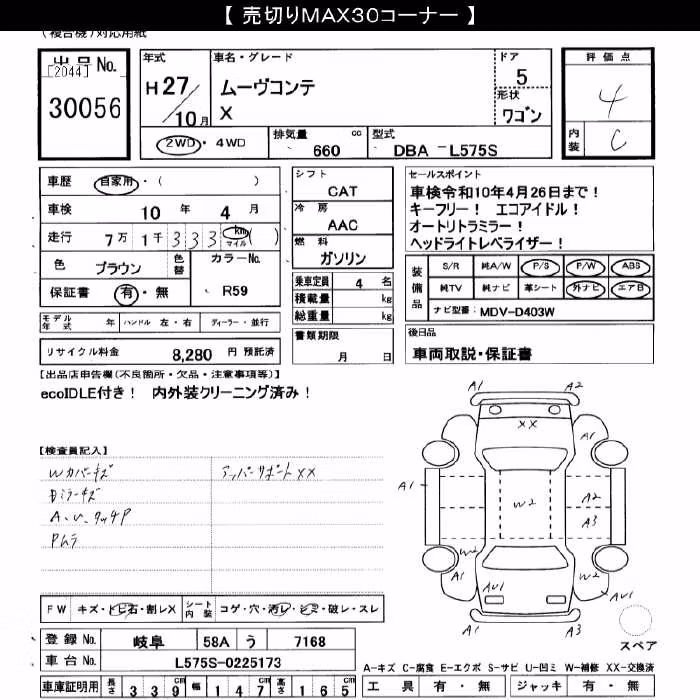 【 売切りMAX30コーナー 】
(複合機)対応用紙
出品No.
[2044]
30056
年式
H27/10月
車名・グレード
ムーヴコンテ
X
ドア
5
形状
ワゴン
2WD・4WD
排気量 cc
660
型式
DBA －L575S
評価点
4
内装
C
車歴 自家用・( )
車検 10 年 4 月
走行 7万 1千 333 km マイル ( )
色 ブラウン 色替 カラーNo.
保証書 有・無 R59
モデル年式 年 ハンドル 左・右 ディーラー・並行
リサイクル料金 8,280 円 預託済
シフト
CAT
冷房
AAC
燃料
ガソリン
乗車定員 4 名
積載量 kg
総重量 kg
書類期限
月 日
セールスポイント
車検令和10年4月26日まで！
キーフリー！ エコアイドル！
オートリトラミラー！
ヘッドライトレベライザー！
装備品
S/R 純A/W P/S P/W ABS
純TV 純ナビ 革シート 外ナビ エアB
ナビ型番： MDV-D403W
後日品
車両取説・保証書
【出品店申告欄(不良箇所・欠品・注意事項等)】
ecoIDLE付き！ 内外装クリーニング済み！
【検査員記入】
Wカバーキズ アッパーサポートXX
Dミラーキズ
A、U、タッチP
Pムラ
FW キズ・トビ石・割レX シート内装 コゲ・穴・汚レ・シミ・破レ・スレ
登録 No. 岐阜 58A う 7168
車台 No. L575S-0225173
車庫証明用 長さ 339 cm 幅 147 cm 高さ 165 cm
A1 A2
XX
A1
A1
W2
A2
A3
W2
A1
AU1
W2
AU1
A3
スペア
A-キズ C-腐食 E-エクボ S-サビ U-凹ミ W-補修 XX-交換済
工具 有・無 ジャッキ 有・無